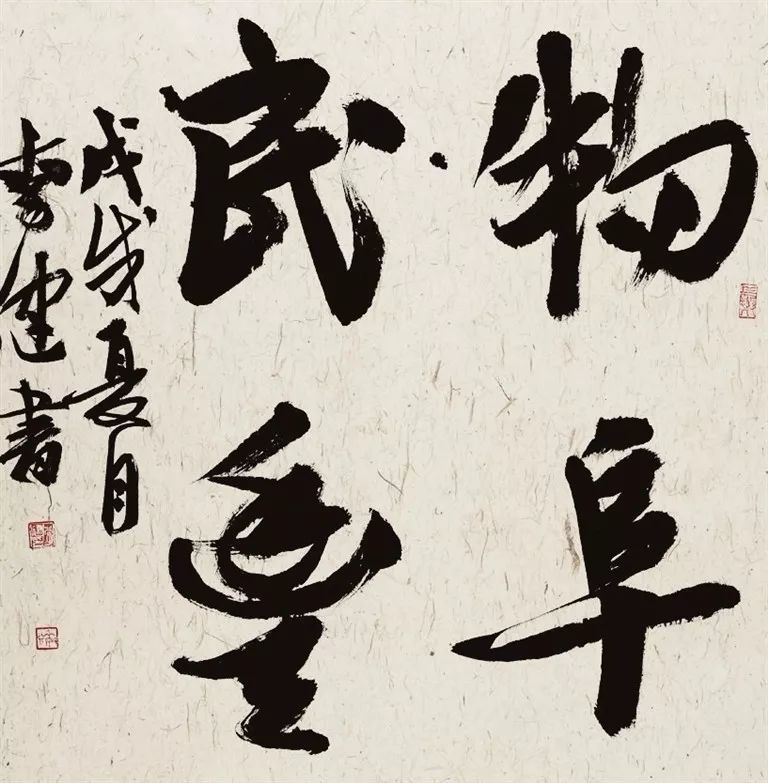 物阜
民豐
戊戌夏月
李健書